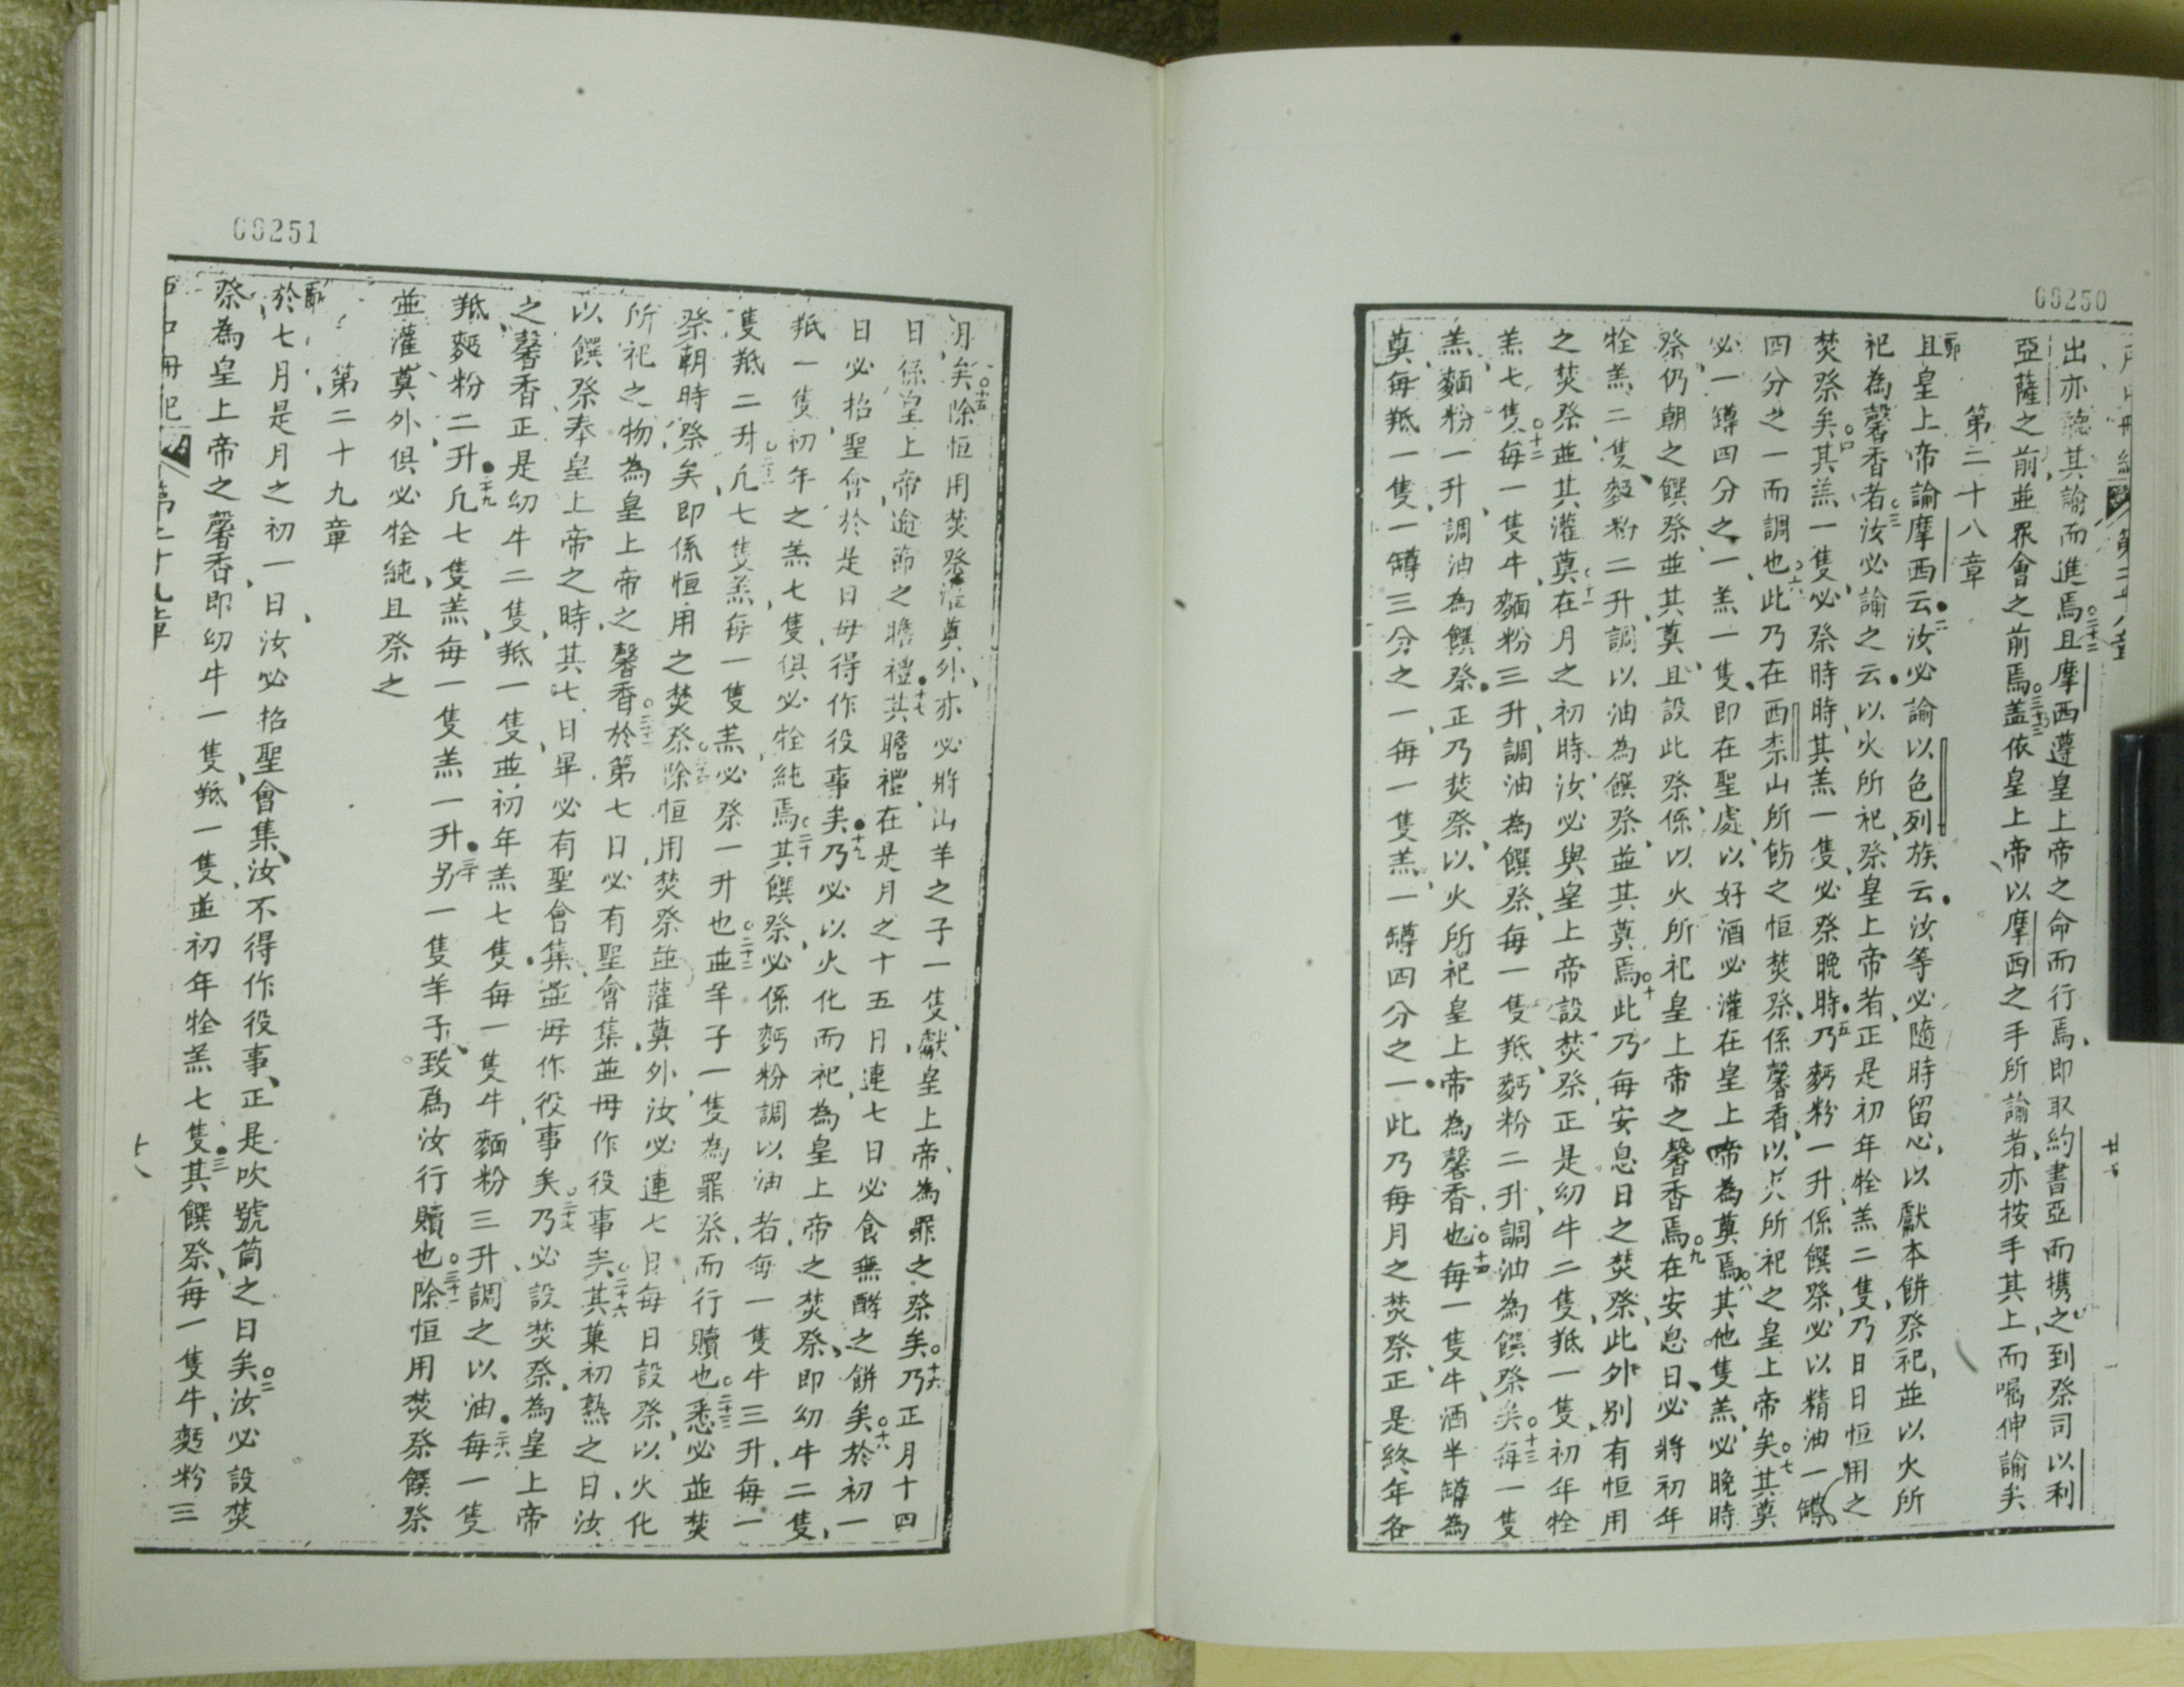 00250
出亦聽其諭而進焉且摩西遵皇上帝之命而行焉即取約書亞而携之到祭司以利
亞薩之前並眾會之前焉蓋依皇上帝以摩西之手所諭者亦按手其上而囑伸諭矣
第二十八章
且皇上帝諭摩西云汝必諭以色列族云汝等必隨時留心以獻本餅祭祀並以火所
祀為馨香者汝必諭之云以火所祀祭皇上帝者正是初年牷羔二隻乃日日恒用之
焚祭矣其羔一隻必祭時時其羔一隻必祭晚時乃麪粉一升係饌祭必以精油一罇
四分之一而調也此乃在西柰山所飭之恒焚祭係馨香以火所祀之皇上帝矣其奠
必一罇四分之一羔一隻即在聖處以好酒必灌在皇上帝為奠焉其他隻羔必晚時
祭仍朝之饌祭並其奠且設此祭係以火所祀皇上帝之馨香焉在安息日必將初年
牷羔二隻麪粉二升調以油為饌祭並其奠焉此乃每安息日之焚祭此外別有恒用
之焚祭並其灌奠在月之初時汝必與皇上帝設焚祭正是幼牛二隻羝一隻初年牷
羔七隻每一隻牛麵粉三升調油為饌祭每一隻羝麪粉二升調油為饌祭矣每一隻
羔麵粉一升調油為饌祭正乃焚祭以火所祀皇上帝為馨香也每一隻牛酒半罇為
奠每羝一隻一罇三分之一每一隻羔一罇四分之一此乃每月之焚祭正是終年各
00251
月矣除恒用焚祭灌奠外亦必將山羊之子一隻獻皇上帝為罪之祭矣乃正月十四
日係皇上帝逾節之瞻禮其瞻禮在是月之十五月連七日必食無酵之餅矣於初一
日必招聖會於是日毋得作役事矣乃必以火化而祀為皇上帝之焚祭即幼牛二隻
羝一隻初年之羔七隻俱必牷純焉其饌祭必係麪粉調以油者每一隻牛三升每一
隻羝二升凢七隻羔每一隻羔必祭一升也並羊子一隻為罪祭而行贖也悉必並焚
祭朝時祭矣即係恒用之焚祭除恒用焚祭並灌奠外汝必連七日每日設祭以火化
所祀之物為皇上帝之馨香於第七日必有聖會集並毋作役事矣其菓初熟之日汝
以饌祭奉皇上帝之時其七日畢必有聖會集並毋作役事矣乃必設焚祭為皇上帝
之馨香正是幼牛二隻羝一隻並初年羔七隻每一隻牛麵粉三升調之以油每一隻
羝麪粉二升凢七隻羔每一隻羔一升另一隻羊子致為汝行贖也除恒用焚祭饌祭
並灌奠外俱必牷純且祭之
第二十九章
於七月是月之初一日汝必招聖會集汝不得作役事正是吹號筒之日矣汝必設焚
祭為皇上帝之馨香即幼牛一隻羝一隻並初年牷羔七隻其饌祭每一隻牛麪粉三
第二十九章